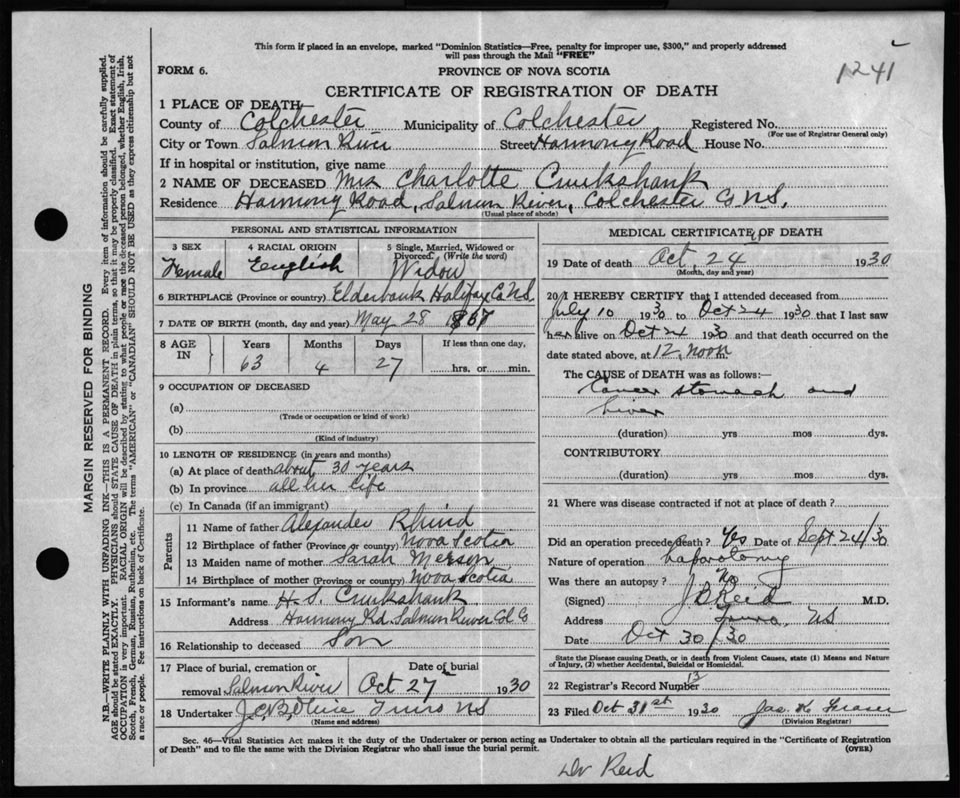 This form if placed in an envelope, marked "Dominion Statistics—Free, penalty for improper use, $300," and properly addressed
will pass through the Mail "FREE"
1241
FORM 6.
PROVINCE OF NOVA SCOTIA
CERTIFICATE OF REGISTRATION OF DEATH
1 PLACE OF DEATH
County of Colchester Municipality of Colchester Registered No.
(For use of Registrar General only)
City or Town Salmon River Street Harmony Road House No.
If in hospital or institution, give name
2 NAME OF DECEASED Mrs Charlotte Cruikshank
Residence Harmony Road, Salmon River, Colchester Co N.S.
(Usual place of abode)
PERSONAL AND STATISTICAL INFORMATION
3 SEX 4 RACIAL ORIGIN 5 Single, Married, Widowed or
Divorced. (Write the word)
Female English Widow
6 BIRTHPLACE (Province or country) Elderbank Halifax Co N.S.
7 DATE OF BIRTH (month, day and year) May 28 1867
8 AGE IN Years Months Days If less than one day,
63 4 27 hrs. or min.
9 OCCUPATION OF DECEASED
(a)
(Trade or occupation or kind of work)
(b)
(Kind of industry)
10 LENGTH OF RESIDENCE (in years and months)
(a) At place of death about 30 years
(b) In province all her life
(c) In Canada (if an immigrant)
Parents
11 Name of father Alexander Rhind
12 Birthplace of father (Province or country) Nova Scotia
13 Maiden name of mother Sarah Merson
14 Birthplace of mother (Province or country) Nova Scotia
15 Informant's name H. S. Cruikshank
Address Harmony Rd. Salmon River Col. Co
16 Relationship to deceased Son
17 Place of burial, cremation or Date of burial
removal Salmon River Oct 27 1930
18 Undertaker Truro NS
(Name and address)
MEDICAL CERTIFICATE OF DEATH
19 Date of death Oct. 24 1930
(Month, day and year)
20 I HEREBY CERTIFY that I attended deceased from
July 10 1930 to Oct 24 1930 that I last saw
her alive on Oct 24 1930 and that death occurred on the
date stated above, at 12, noon m.
The CAUSE of DEATH was as follows:—
Cancer stomach and
Liver
(duration) yrs mos dys.
CONTRIBUTORY
(duration) yrs mos dys.
21 Where was disease contracted if not at place of death?
Did an operation precede death? Yes Date of Sept 24/30
Nature of operation Laparotomy
Was there an autopsy? No
(Signed) J D Reid M.D.
Address Truro, NS
Date Oct 30/30
State the Disease causing Death, or in death from Violent Causes, state (1) Means and Nature
of Injury, (2) whether Accidental, Suicidal or Homicidal.
22 Registrar's Record Number 13
23 Filed Oct 31st 1930 Jas. H Fraser
(Division Registrar)
Sec. 46—Vital Statistics Act makes it the duty of the Undertaker or person acting as Undertaker to obtain all the particulars required in the "Certificate of Registration
of Death" and to file the same with the Division Registrar who shall issue the burial permit. (OVER)
Dr Reid
MARGIN RESERVED FOR BINDING
N.B.—WRITE PLAINLY WITH UNFADING INK—THIS IS A PERMANENT RECORD. Every item of information should be carefully supplied.
AGE should be stated EXACTLY. PHYSICIANS should STATE CAUSE OF DEATH in plain terms, so that it may be properly classified. Exact statement of
OCCUPATION is very important. RACIAL ORIGIN will be described by stating to what people or race the deceased person belonged, whether English, Irish,
Scotch, French, German, Russian, Ruthenian, etc. The terms "AMERICAN" or "CANADIAN" SHOULD NOT BE USED as they express citizenship but not
a race or people. See instructions on back of Certificate.